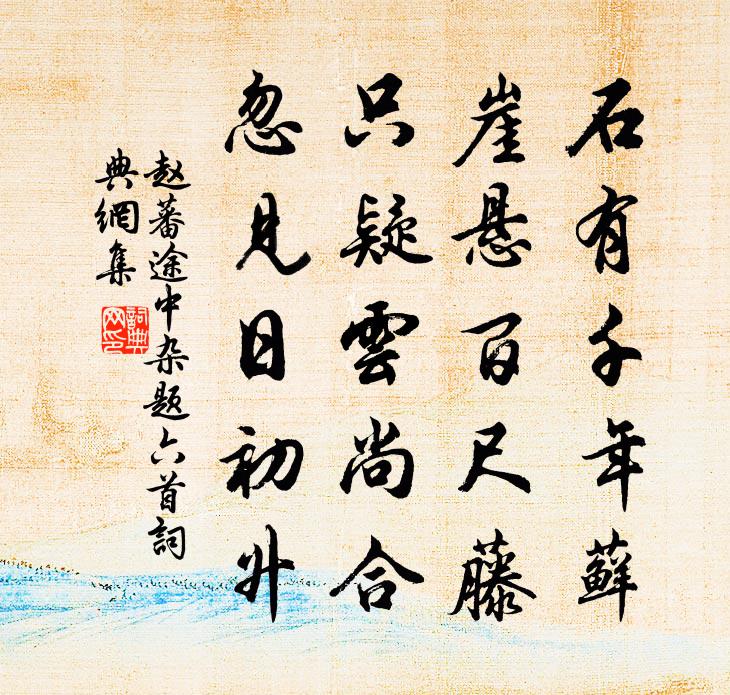 石有千年蘚
崖悬百尺藤
只疑雲尚合
忽見日初升
赵蕃途中杂题六首詞
典網集
詞典
网印